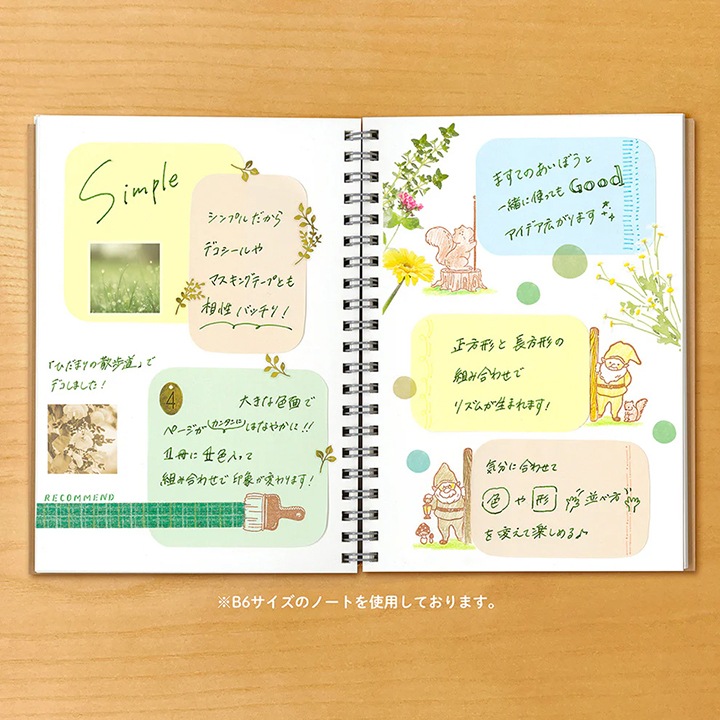 Simple
シンプルだから
デコシールや
マスキングテープとも
相性バッチリ!
「ひだまりの散歩道」で
デコしました!
4
大きな色面で
ページがカンタンにはなやかに!!
1冊に 全色入って
組み合わせで印象が変わります!
RECOMMEND
ますてのあいぼうと
一緒に使ってもGood
アイデア広がります
正方形と長方形の
組み合わせで
リズムが生まれます!
気分に合わせて
色や形 並べ方
を変えて楽しめる♪
※B6サイズのノートを使用しております。